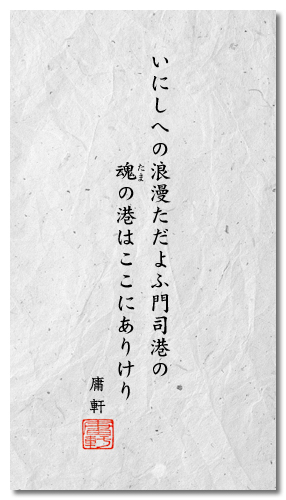 いにしへの浪漫ただよふ門司港の
魂の港はここにありけり
たま
庸軒
庸軒